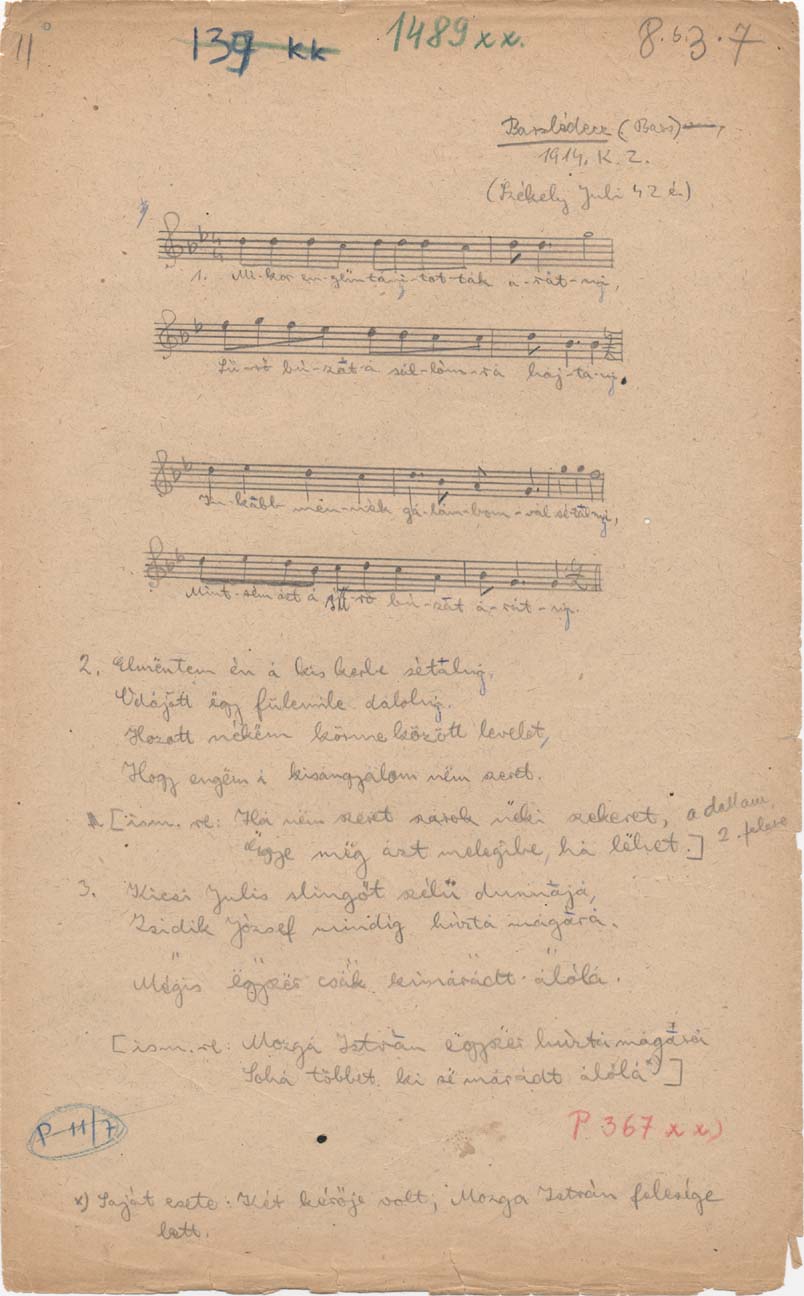 11°
139 kk
1489 x x.
8.6.3.7
Barslédecz (Bars)
1914. K. Z.
(Székely Juli 42 é.)
1. Mi-kor en-gëm ta-nj-tot-tak a-rát-nyi,
Sü-rö bú-zát a sál-lóm-ra haj-ta-nyi.
In-kább mën-nék ga-lám-bom-val sé-tál-nyi,
Mint-sëm ázt á sü-rö bú-zát á-rát-nyi.
2. Elmëntem én á kis kerbe sétálnyi,
Odájött ëgy fülemile dálolnyi.
Hozott nékëm körme között levelet,
Hogy engëm á kisángyálom nëm szeret.
[ism. re: Há nëm szeret szarok nëki szekeret, a dallam 2. felére
ëgye mëg ázt melegibe, há lëhet.]
3. Kicsi Julis slingőt szélű dunnájá,
Zsidik József mindig húztá mágárá.
Mégis ëgyszër csák kimárádt álólá.
[ism. re: Mozgá István ëgyszër húztá mágárá
Sohá többet ki së márádt álólá x)]
P-11/7
P. 367 x x)
x) Saját esete: Két kérője volt, Mozga István felesége
lett.